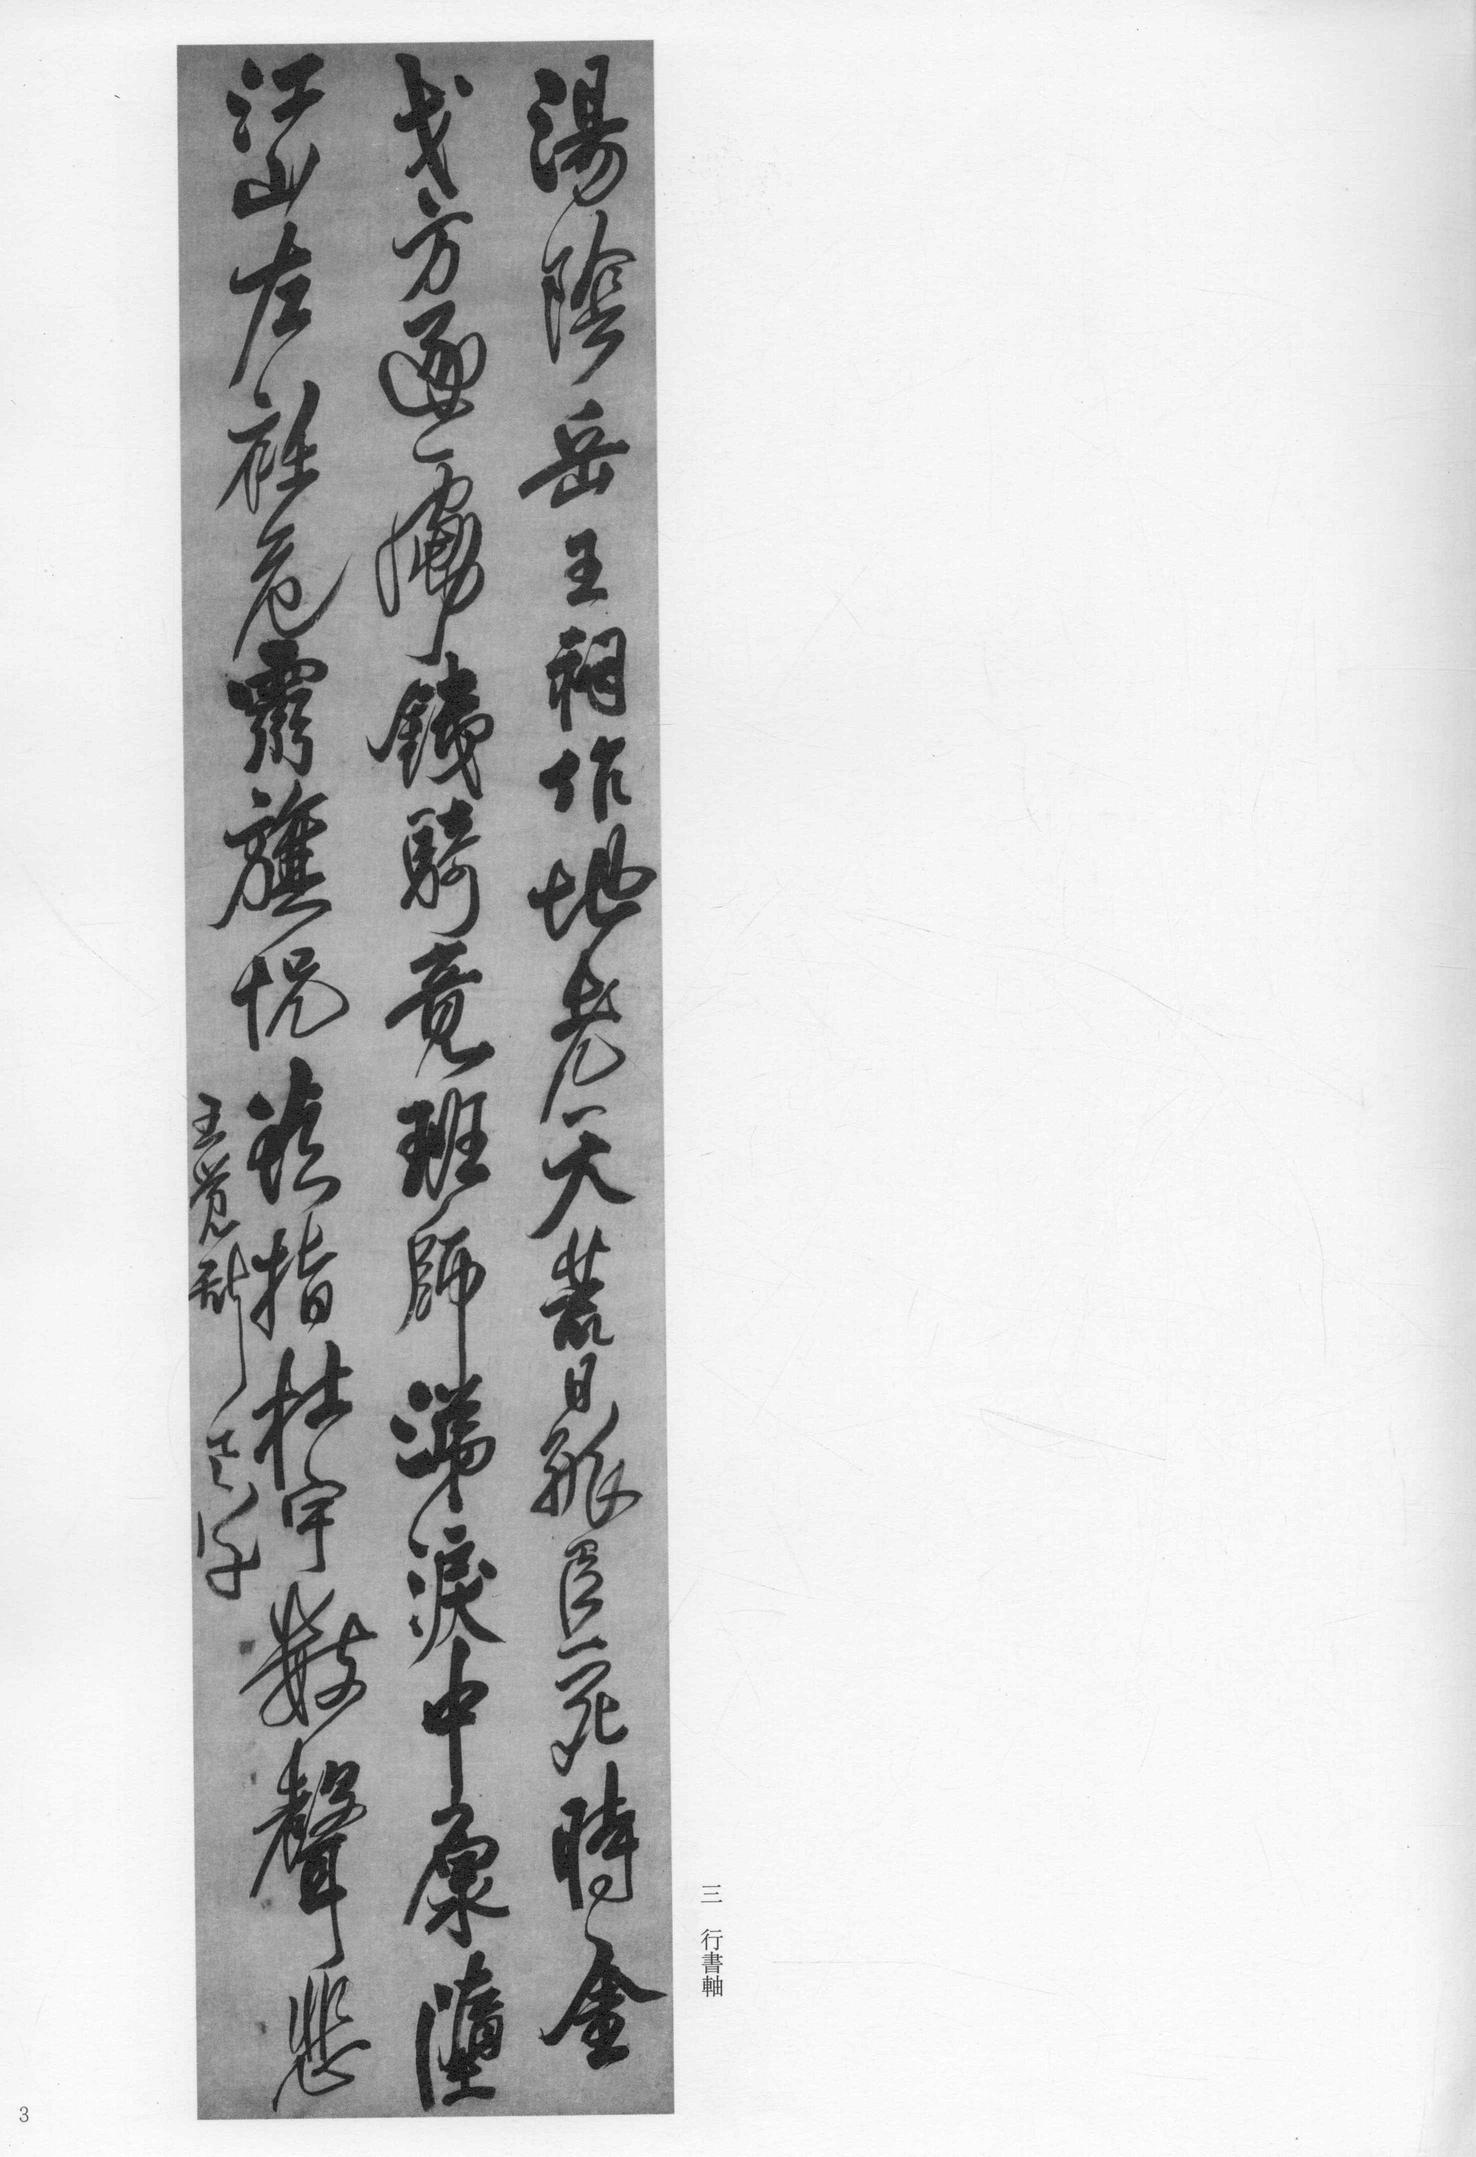 湯陰岳王祠作地老天荒日孤臣一死時金
戈方逐虜鐵騎竟班師涕淚中原墮
江山左衽危靈旗恍指杜宇數聲悲
王覺斯
三　行書軸
3